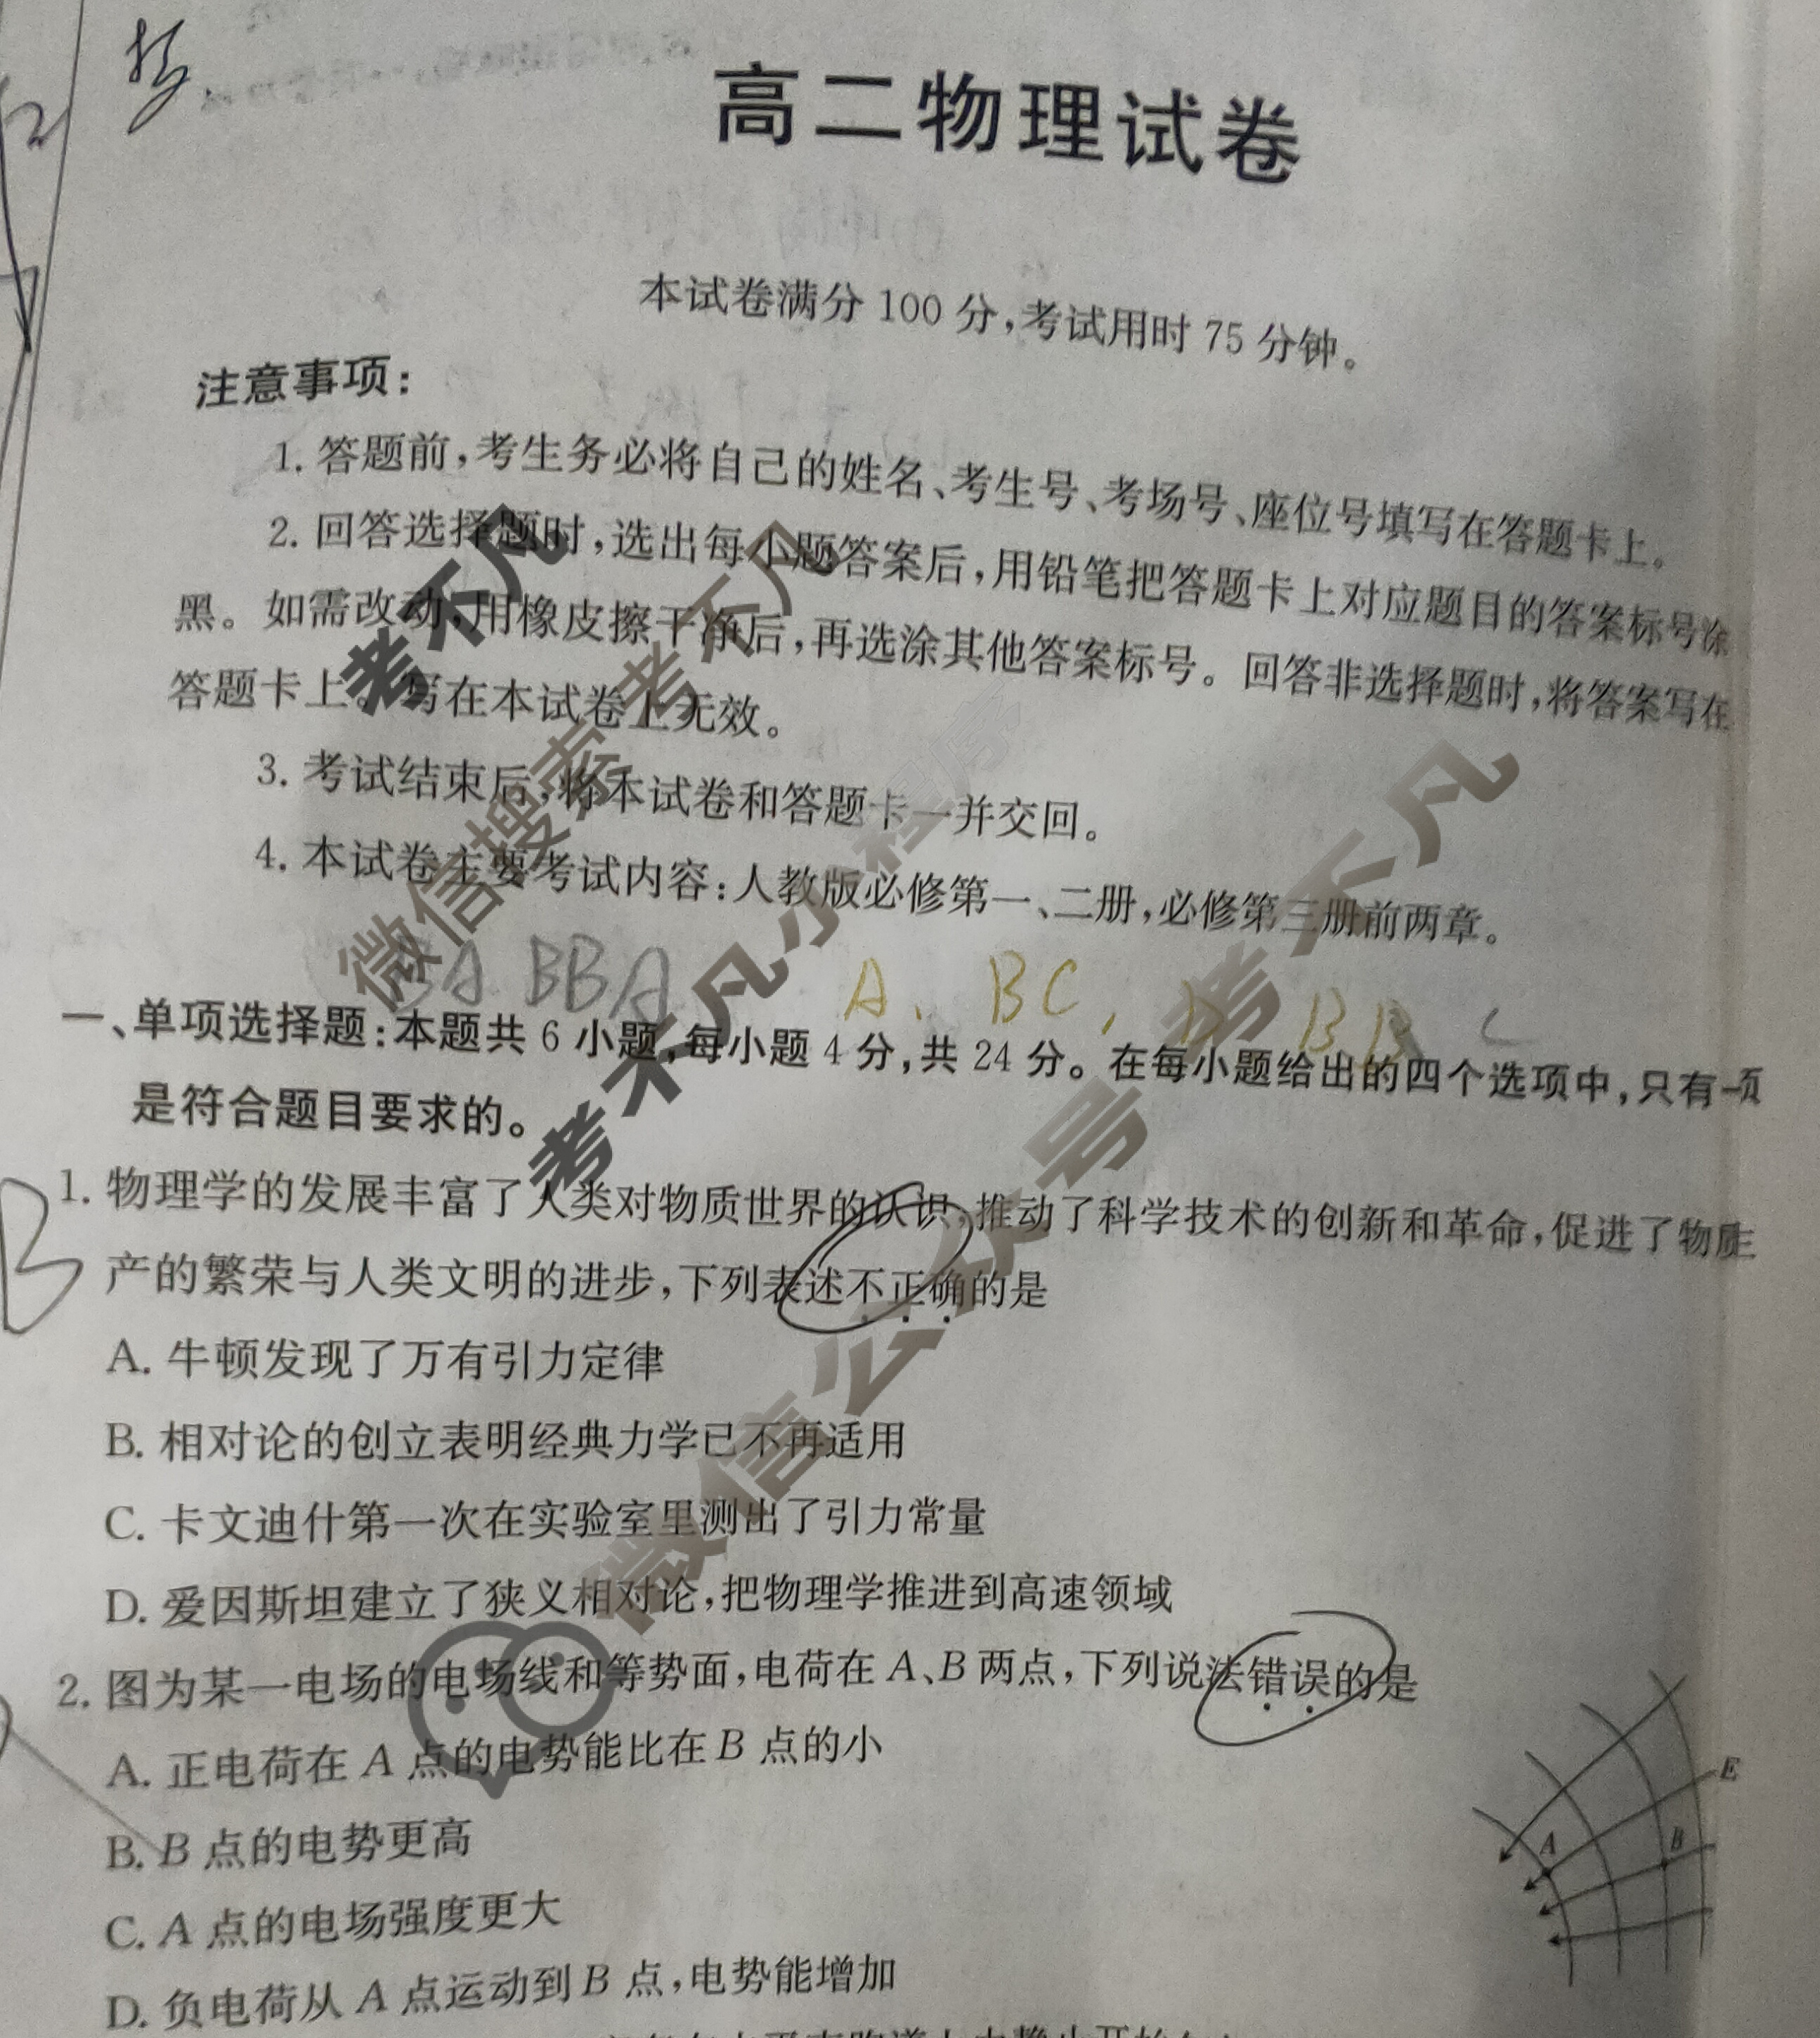 高二物理试卷
本试卷满分 100 分,考试用时 75 分钟。
注意事项:
1. 答题前,考生务必将自己的姓名、考生号、考场号、座位号填写在答题卡上。
2. 回答选择题时,选出每小题答案后,用铅笔把答题卡上对应题目的答案标号涂
黑。如需改动,用橡皮擦干净后,再选涂其他答案标号。回答非选择题时,将答案写在
答题卡上。写在本试卷上无效。
3. 考试结束后,将本试卷和答题卡一并交回。
4. 本试卷主要考试内容:人教版必修第一、二册,必修第三册前两章。
BA BBA A. BC, D BB C
一、单项选择题:本题共 6 小题,每小题 4 分,共 24 分。在每小题给出的四个选项中,只有一项
是符合题目要求的。
B
1. 物理学的发展丰富了人类对物质世界的认识,推动了科学技术的创新和革命,促进了物质生
产的繁荣与人类文明的进步,下列表述不正确的是
A. 牛顿发现了万有引力定律
B. 相对论的创立表明经典力学已不再适用
C. 卡文迪什第一次在实验室里测出了引力常量
D. 爱因斯坦建立了狭义相对论,把物理学推进到高速领域
2. 图为某一电场的电场线和等势面,电荷在 A、B 两点,下列说法错误的是
A. 正电荷在 A 点的电势能比在 B 点的小
B. B 点的电势更高
C. A 点的电场强度更大
D. 负电荷从 A 点运动到 B 点,电势能增加
E
A
B
考不凡
微信搜索 考不凡
考不凡小程序
微信公众号 考不凡